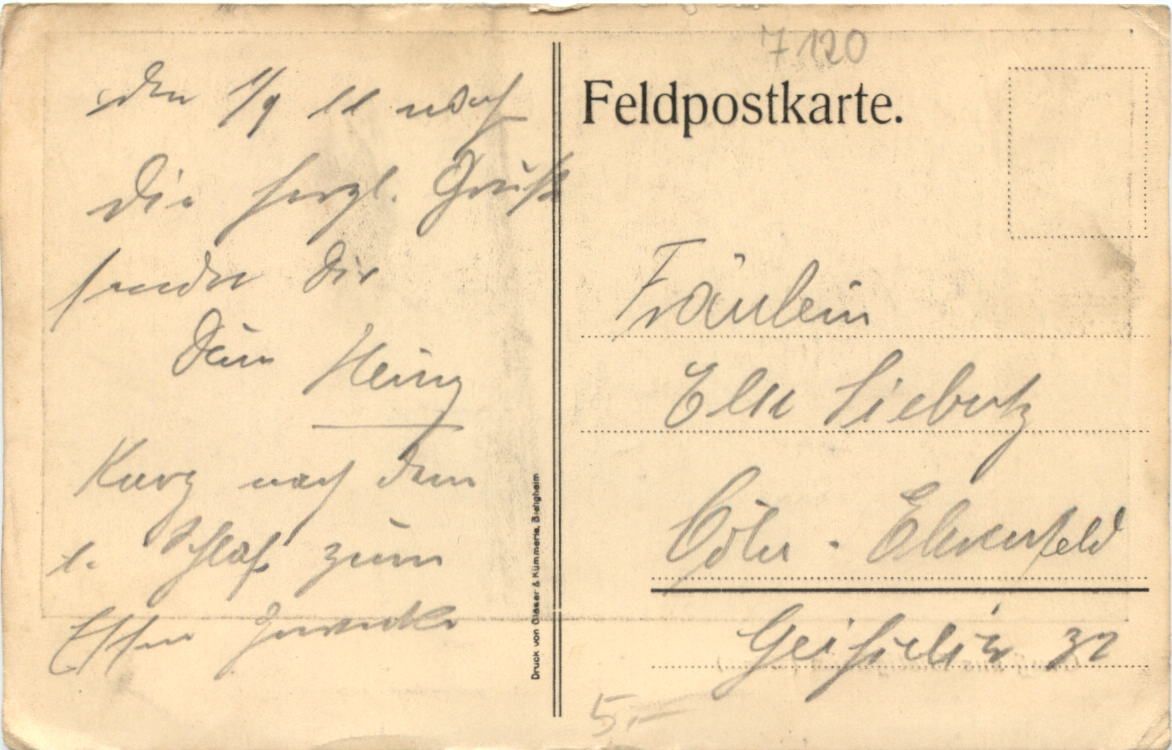 den 1/9
Die herzl. Grüße
sendet Dir
Dein Heinz
Kurz nach dem
1. Schlaf zum
Essen geweckt
7120
Feldpostkarte.
Fräulein
Else Siebertz
Cöln - Ehrenfeld
32
5.-
Druck von Glaser & Kümmerle, Bietigheim